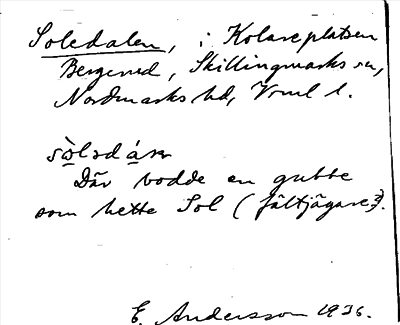 Soledalen, i Kolareplatsen
Bergerud, Skillingmarks sn,
Nordmarks hd, Vrml l.
sòlədáɴ
Där bodde en gubbe
som hette Sol (fältjägare?).
E. Andersson 1936.